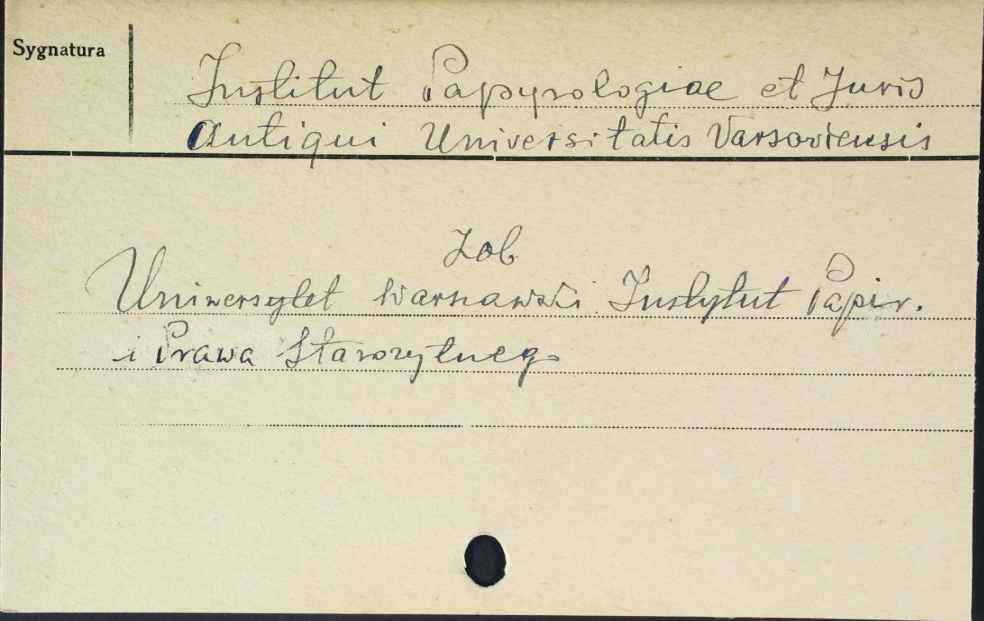 Sygnatura
Institut Papyrologiae et Juris
Antiqui Universitatis Varsoviensis
Zob
Uniwersytet Warszawski. Instytut Papir.
i Prawa Starożytnego